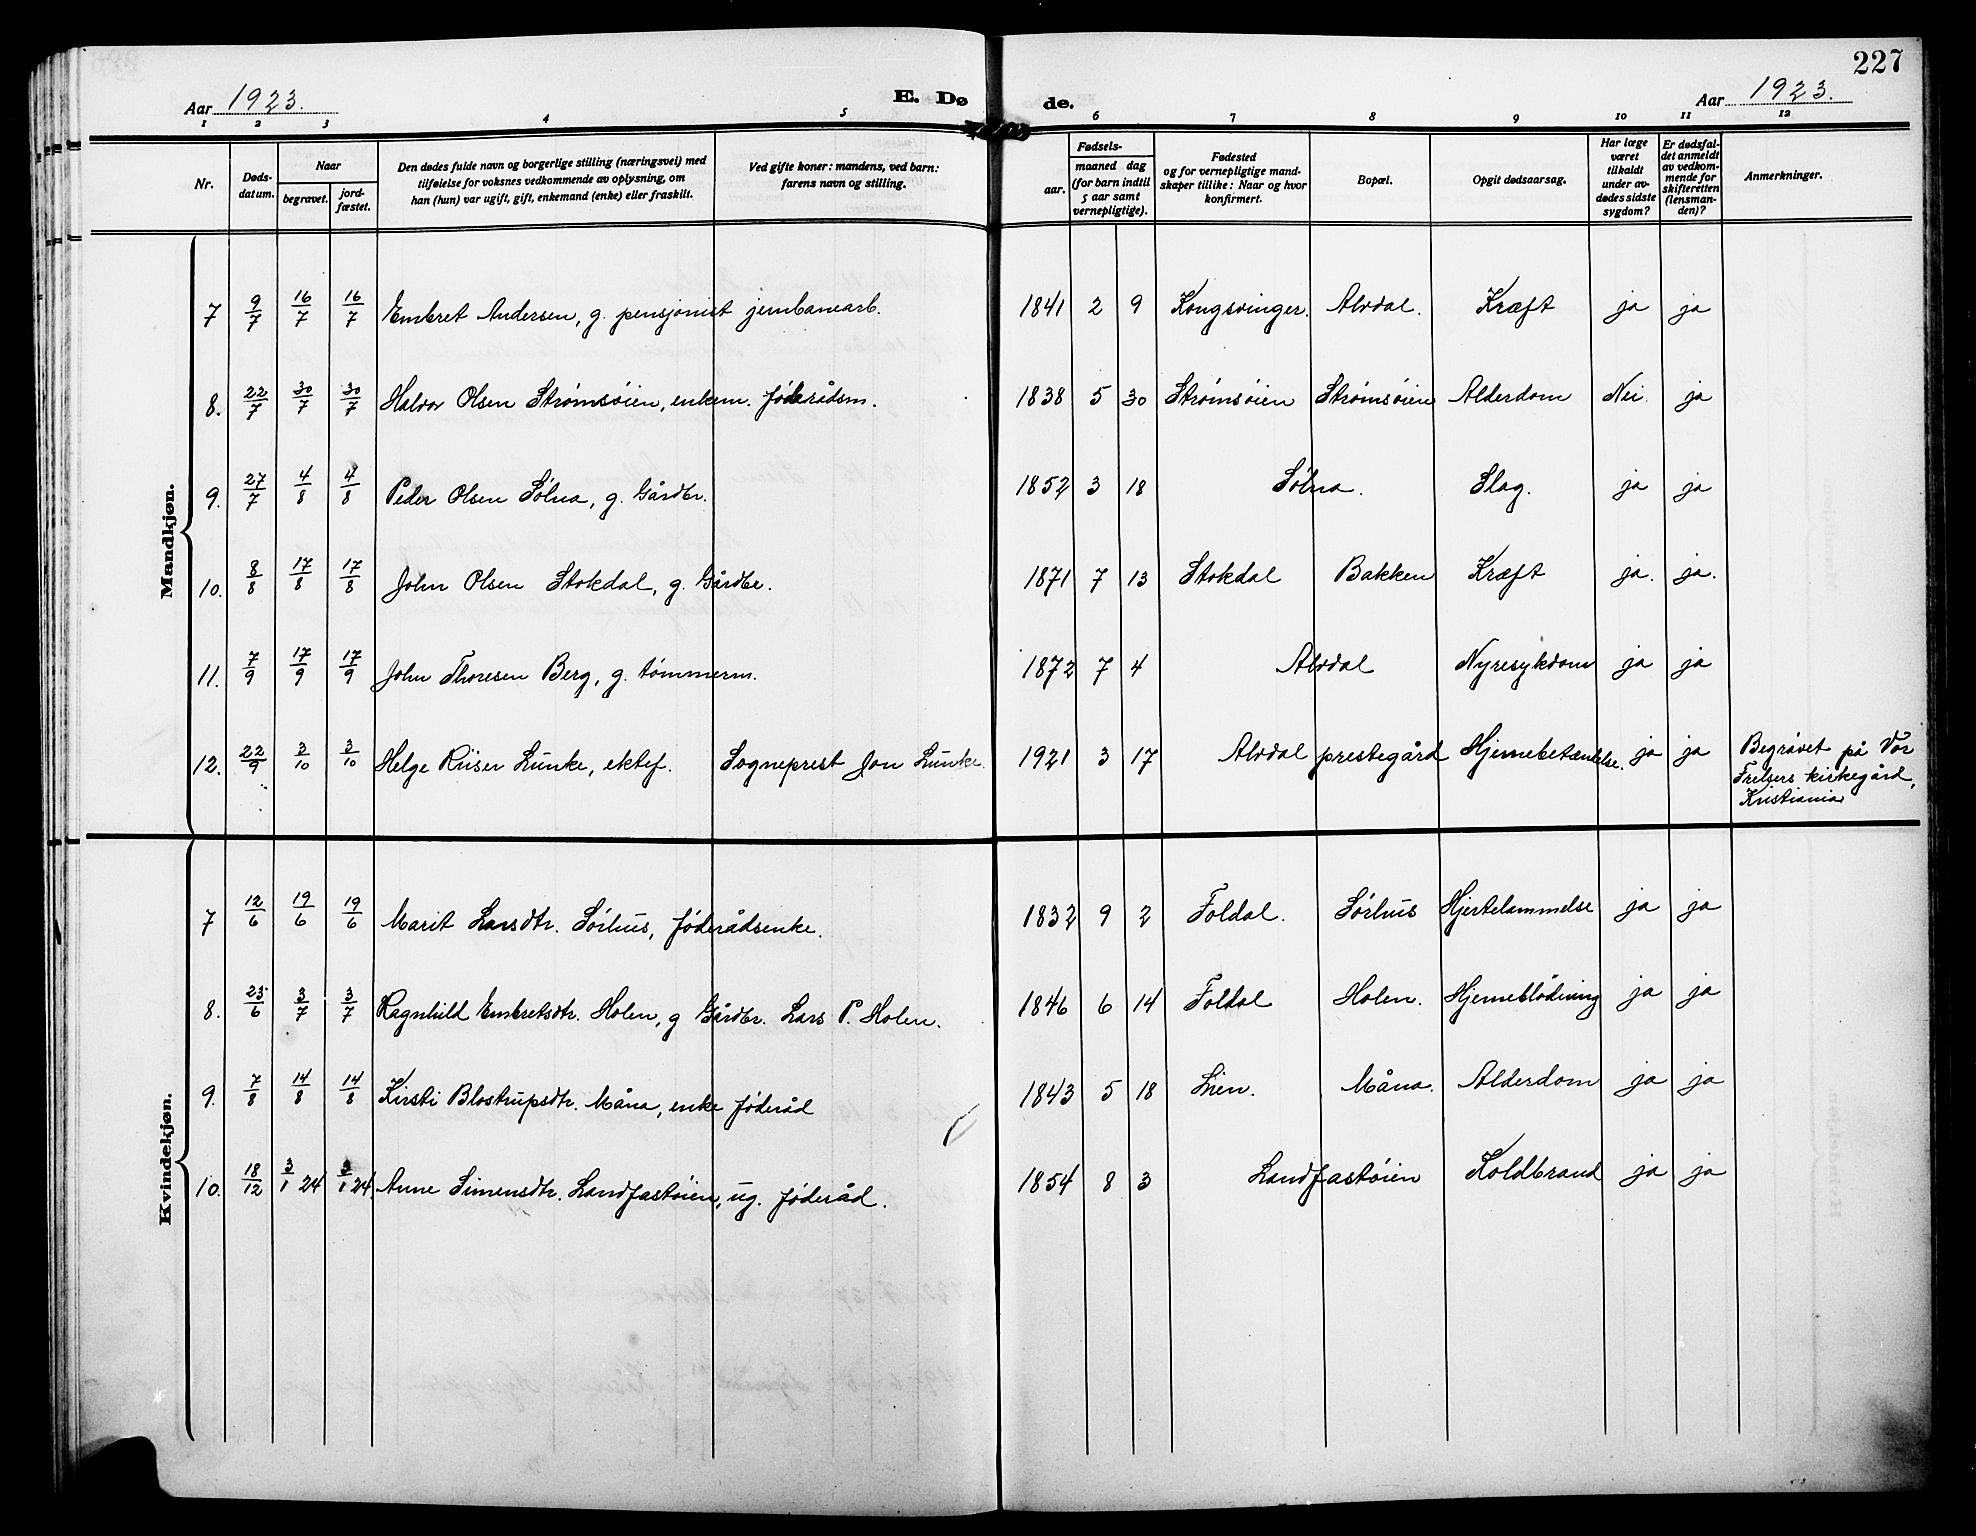 227
Aar 1923. E. Dø de. Aar 1923.
1 2 3 4 5 6 7 8 9 10 11 12
Nr.
Døds-
datum.
Naar
begravet.
jord-
fæstet.
Den dødes fulde navn og borgerlige stilling (næringsvei) med
tilføielse for voksnes vedkommende av oplysning, om
han (hun) var ugift, gift, enkemand (enke) eller fraskilt.
Ved gifte koner: mandens, ved barn:
farens navn og stilling.
Fødsels-
aar.
maaned dag
(for barn indtil
5 aar samt
vernepligtige).
Fødested
og for vernepligtige mand-
skaper tillike: Naar og hvor
konfirmert.
Bopæl.
Opgit dødsaarsag.
Har læge
været
tilkaldt
under av-
dødes sidste
sygdom?
Er dødsfal-
det anmeldt
av vedkom-
mende for
skifteretten
(lensman-
den)?
Anmerkninger.
Mandkjøn.
7 9/7 16/7 16/7 Embret Andersen, g. pensjonist jernbanearb. 1841 2 9 Kongsvinger. Alvdal. Kræft ja ja
8. 22/7 30/7 30/7 Halvor Olsen Strømsøien, enkem. føderådsm. 1838 5 30 Strømsøien Strømsøien Alderdom Nei. ja
9. 27/7 4/8 4/8 Peder Olsen Sølna, g. Gårdbr. 1852 3 18 Sølna. Slag. ja ja
10. 8/8 17/8 17/8 John Olsen Stokdal, g. Gårdbr. 1871 7 13 Stokdal Bakken Kræft ja. ja.
11. 7/9 17/9 17/9 John Thoresen Berg, g. tømmerm. 1872 7 4 Alvdal Nyresykdom ja ja
12. 22/9 3/10 3/10 Helge Riiser Lunke, ektef. Sogneprest Jon Lunke. 1921 3 17 Alvdal prestegård Hjernebetændelse. ja ja Begravet på Vor
Frelsers kirkegård,
Kristiania
Kvindekjøn.
7 12/6 19/6 19/6 Marit Larsdtr. Sørhus, føderådsenke. 1832 9 2 Foldal. Sørhus Hjertelammelse ja ja
8. 25/6 3/7 3/7 Ragnhild Embretsdtr. Holen, g Gårdbr. Lars P. Holen. 1846 6 14 Foldal Holen. Hjerneblødning ja ja
9. 7/8 14/8 14/8 Kirsti Blostrupsdtr. Måna, enke føderåd 1843 5 18 Lien. Måna. Alderdom ja ja
10. 18/12 3/1 24 3/1 24 Anne Simensdtr. Landfastøien, ug. føderåd. 1854 8 3 Landfastøien Koldbrand ja ja